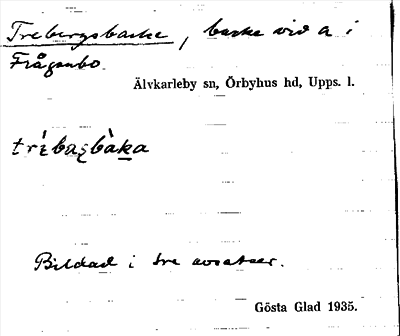 Trebergsbacke, backe vid å i
Frågonbo.
Älvkarleby sn, Örbyhus hd, Upps. l.
Bildad i tre avsatser.
Gösta Glad 1935.